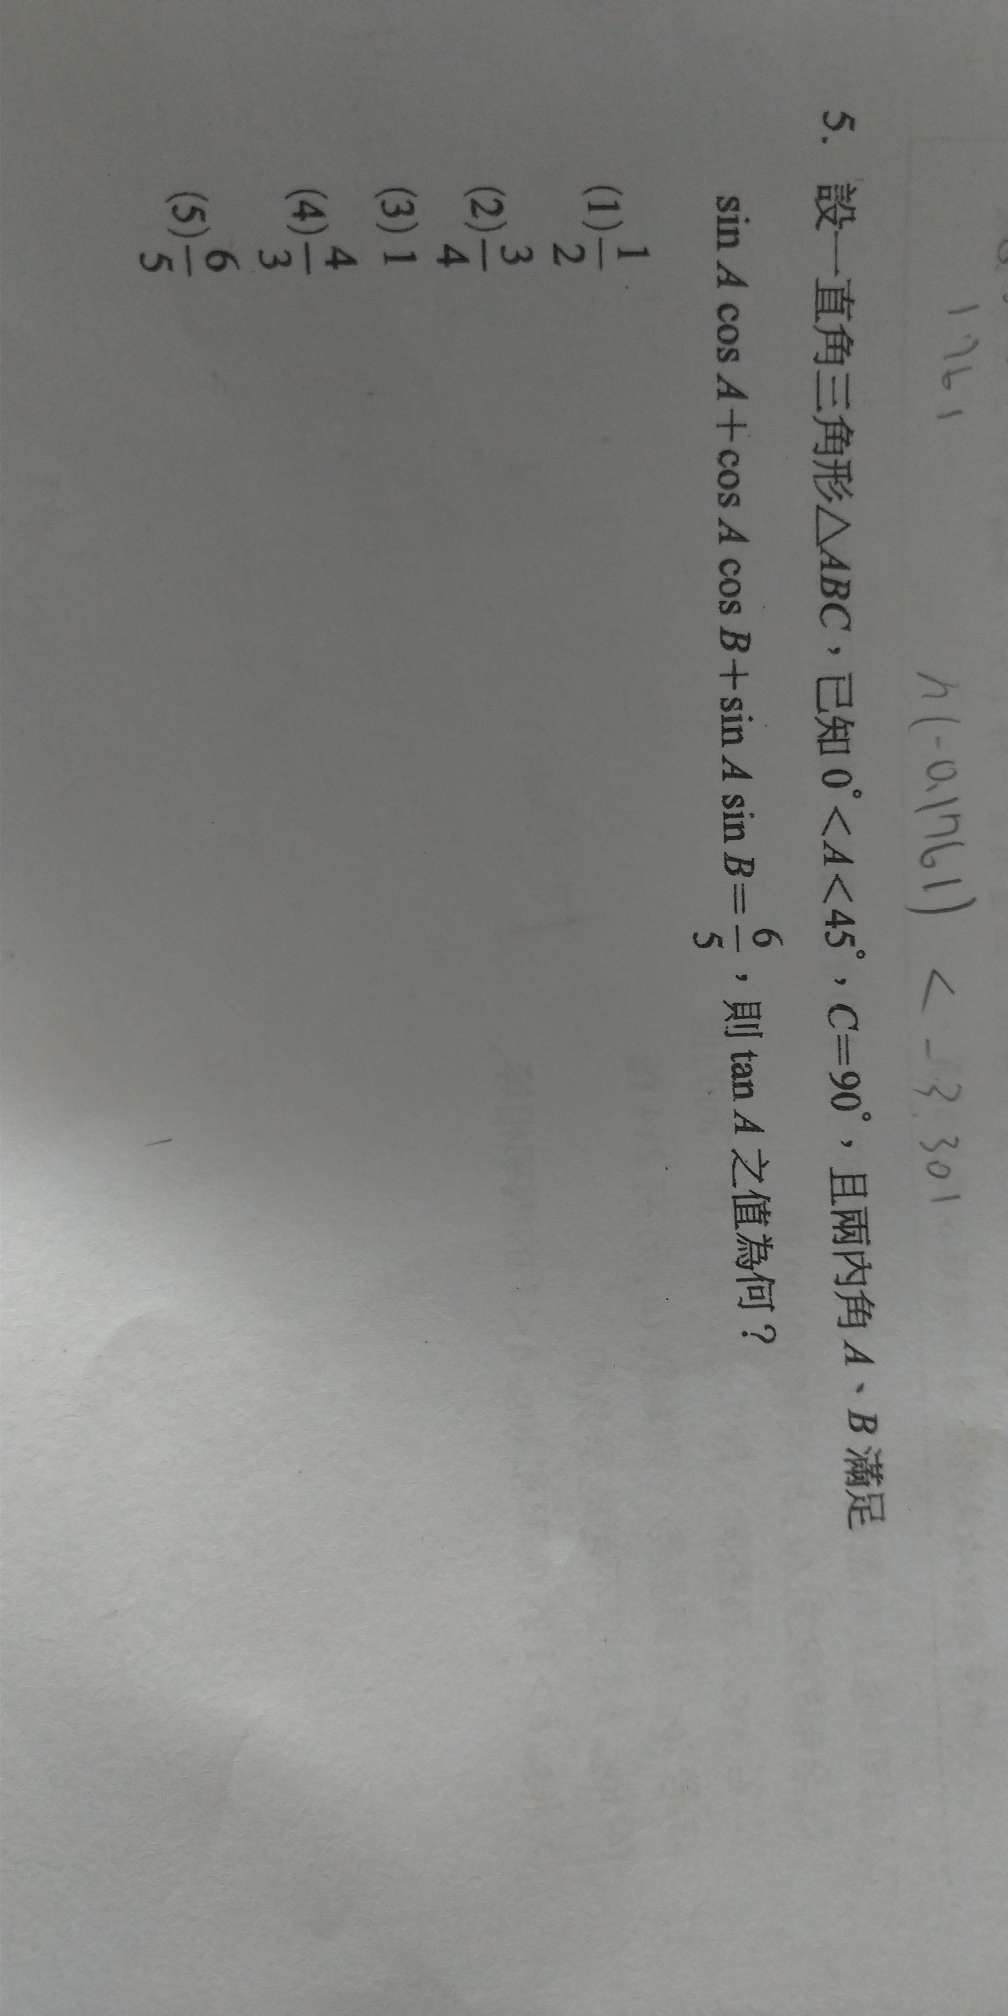 1.761
n(-0.1761) < -3.301
5. 設一直角三角形△ABC，已知 0°<A<45°，C=90°，且兩內角 A、B 滿足
sin A cos A+cos A cos B+sin A sin B=6/5，則 tan A 之值為何？
(1) 1/2
(2) 3/4
(3) 1
(4) 4/3
(5) 6/5